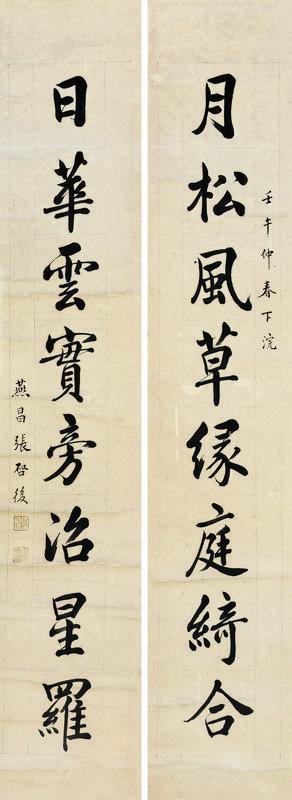 壬午仲春下浣
月松風草緣庭綺合
日華雲實旁沼星羅
燕昌張啓後